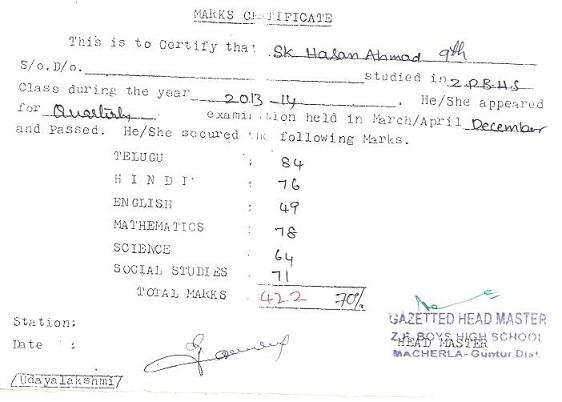 MARKS CERTIFICATE
This is to Certify that SK Hasan Ahmad 9th
S/o.D/o. studied in Z.P.B.H.S
Class during the year 2013-14 . He/She appeared
for Quarterly examination held in March/April December
and Passed. He/She secured the following Marks.
TELUGU : 84
HINDI : 76
ENGLISH : 49
MATHEMATICS : 78
SCIENCE : 64
SOCIAL STUDIES : 71
TOTAL MARKS : 422 70%
Station:
Date :
GAZETTED HEAD MASTER
Z.P. BOYS HIGH SCHOOL
HEAD MASTER
MACHERLA- Guntur Dist.
/Udayalakshmi/